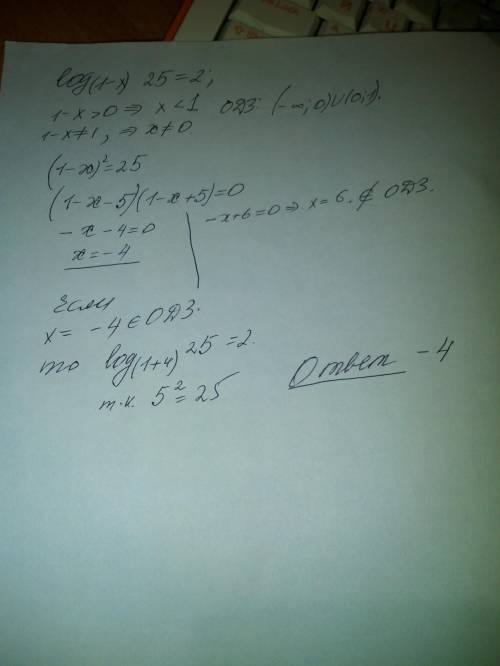 log(1-x) 25 = 2;
1-x>0 ⇒ x<1 ОДЗ: (-∞;0)∪(0;1).
1-x≠1, ⇒ x≠0
(1-x)²=25
(1-x-5)(1-x+5)=0
-x-4=0 -x+6=0 ⇒ x=6. ∉ ОДЗ.
x=-4
Если
x= -4 ∈ ОДЗ.
то log(1+4) 25=2.
т.к. 5²=25
Ответ -4